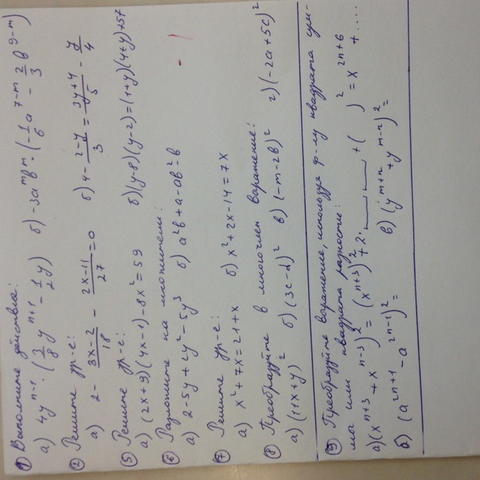 ① Выполните действия:
а) 4y^{n-1} · (3/8 y^{n+1} - 1/2 y) б) -3a^m b^m · (-1/6 a^{7-m} - 2/3 b^{9-m})
② Решите ур-е:
а) 2 - 3x-2/18 - 2x-11/27 = 0 б) 4 - 2-y/3 = 3y+4/5 - y/4
⑤ Решите ур-е:
а) (2x+9)(4x-1)-8x²=59 б) (y-8)(y-2)=(1+y)(4+y)+57
⑥ Разложите на множители:
а) 2-5y+2y²-5y³ б) a²b+a-ab²-b
⑦ Решите ур-е:
а) x²+7x=21+x б) x²+2x-14=7x
⑧ Преобразуйте в многочлен выражение:
а) (1+x+y)² б) (3c-d)² в) (-m-2b)² г) (-2a+5c)²
⑨ Преобразуйте выражение, используя ф-лу квадрата сум-
мы или квадрата разности:
а) (x^{n+3} + x^{n-3})² = (x^{n+3})² + 2·__·__ + ( )² = x^{2n+6} + ....
б) (a^{2n+1} - a^{2n-1})² = в) (y^{m+n} + y^{m-n})² =